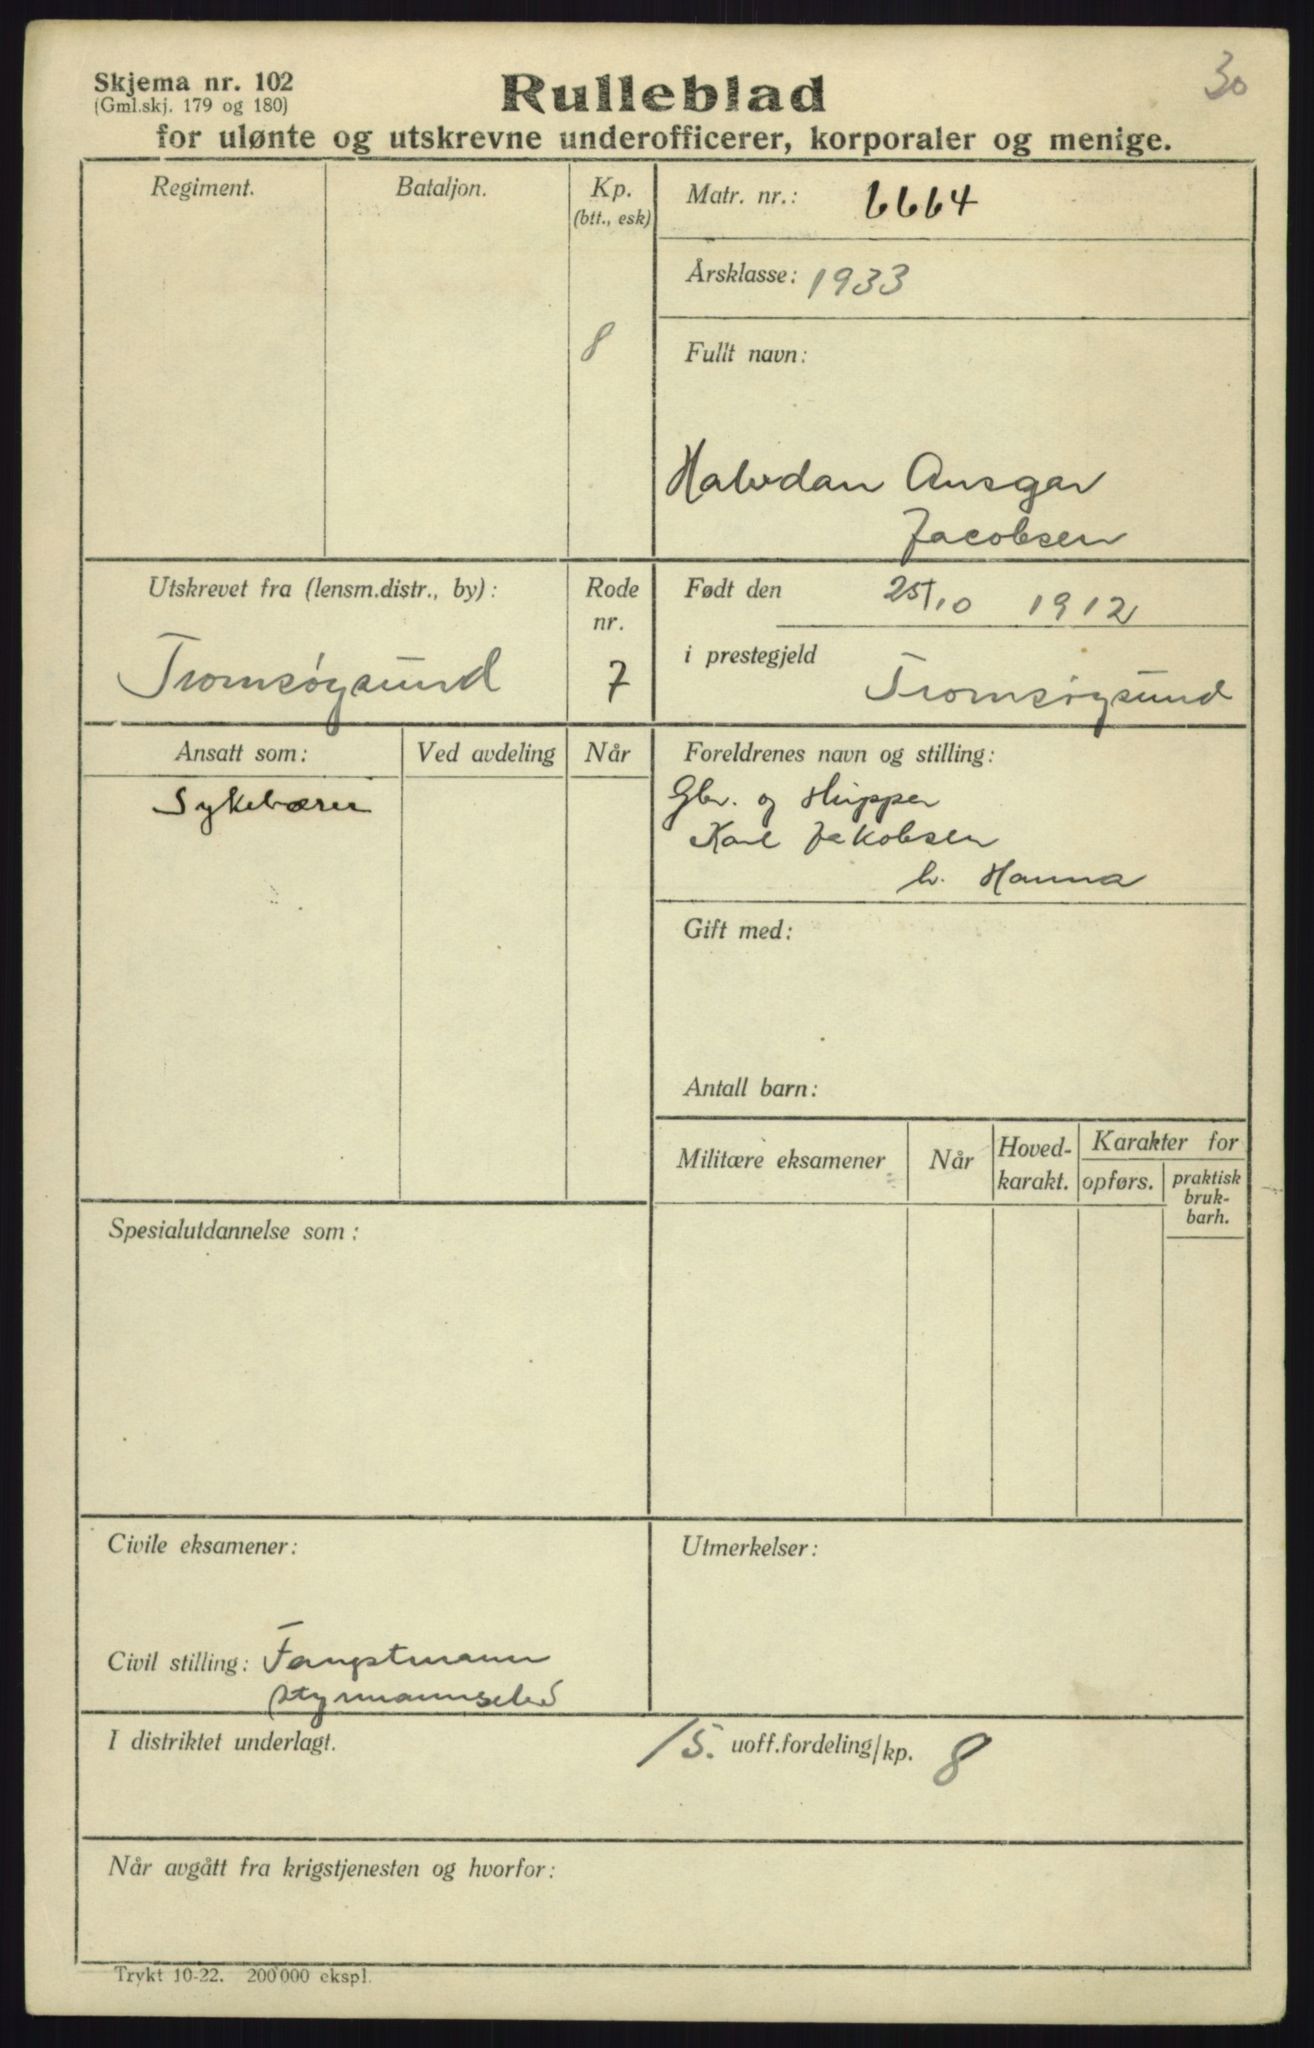 30
Skjema nr. 102
(Gml.skj. 179 og 180)
Rulleblad
for ulønte og utskrevne underofficerer, korporaler og menige.
Regiment.
Bataljon.
Kp.
(btt., esk)
8
Matr. nr.: 6664
Årsklasse: 1933
Fullt navn:
Halvdan Ansgar
Jacobsen
Utskrevet fra (lensm.distr., by):
Tromsøysund
Rode
nr.
7
Født den 25/10 1912
i prestegjeld Tromsøysund
Ansatt som:
Ved avdeling
Når
Sykebærer
Foreldrenes navn og stilling:
Gbr. og
Karl Jakobsen
h. Hanna
Gift med:
Antall barn:
Militære eksamener
Når
Hoved-
karakt.
Karakter for
opførs.
praktisk
bruk-
barh.
Spesialutdannelse som:
Civile eksamener:
Civil stilling: Fangstmann
Utmerkelser:
I distriktet underlagt.
15. uoff.fordeling/kp. 8
Når avgått fra krigstjenesten og hvorfor:
Trykt 10-22. 200000 ekspl.